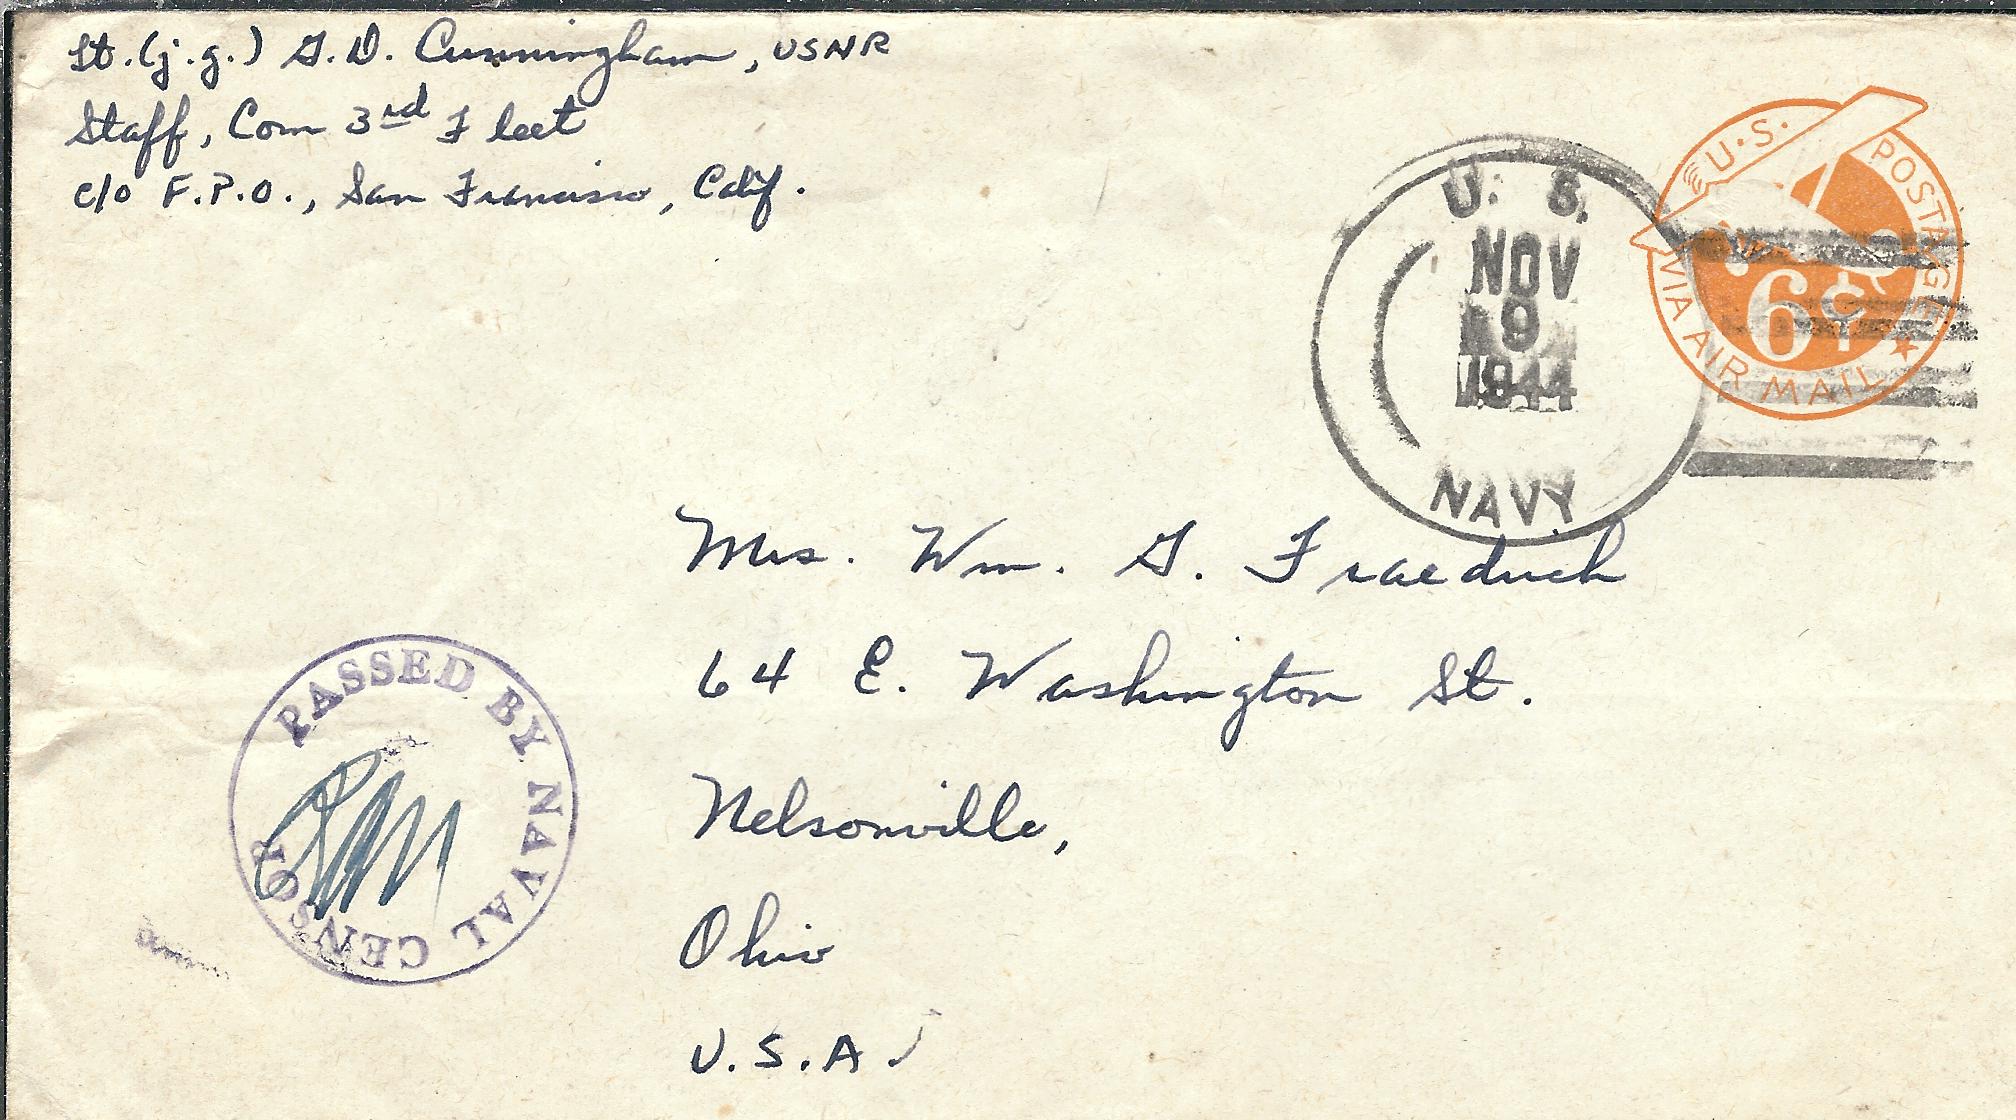 Lt. (j.g.) G. D. Cunningham, USNR
Staff, Com 3rd Fleet
c/o F.P.O., San Francisco, Calif.
U.S. POSTAGE
6¢
VIA AIR MAIL
U. S.
NOV
9
1944
NAVY
Mrs. Wm. G. Fraedrich
64 E. Washington St.
Nelsonville,
Ohio
U.S.A.
PASSED BY NAVAL CENSOR